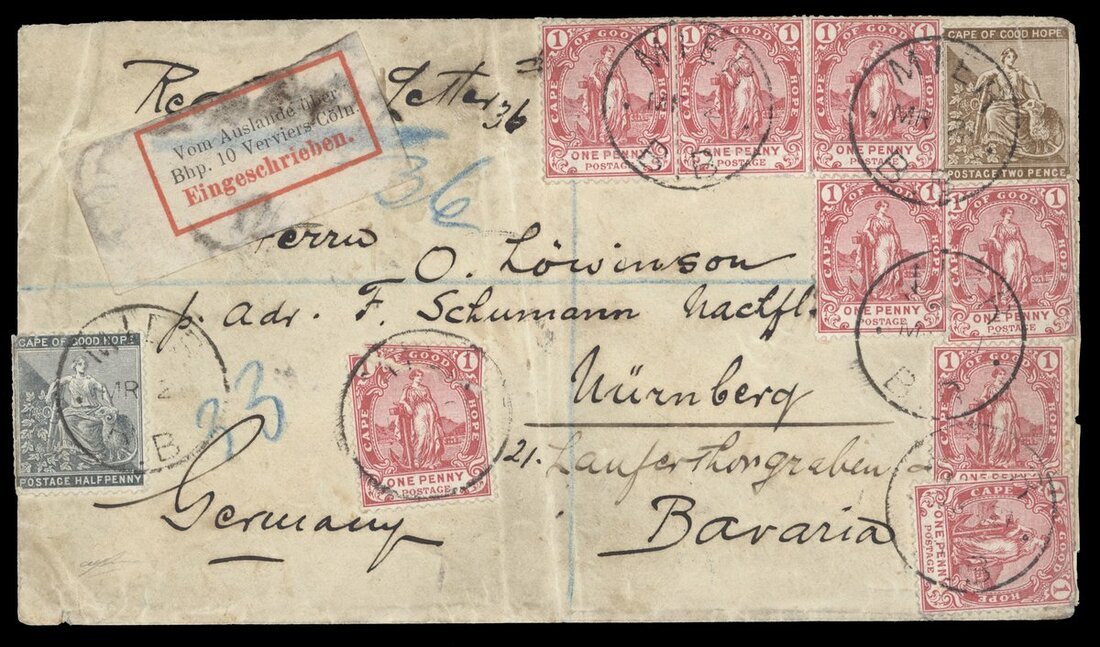 Letter 36
Vom Auslande über
Bhp. 10 Verviers-Cöln
Eingeschrieben.
36
Herrn
O. Löwinson
p. Adr. F. Schumann Nachfl.
Nürnberg
21. Lauferthorgraben
Bavaria
Germany
33
1 1
CAPE OF GOOD HOPE
ONE PENNY
POSTAGE
1 1
CAPE OF GOOD HOPE
ONE PENNY
POSTAGE
1 1
CAPE OF GOOD HOPE
ONE PENNY
POSTAGE
CAPE OF GOOD HOPE
POSTAGE TWO PENCE
1 1
CAPE OF GOOD HOPE
ONE PENNY
POSTAGE
1
OF GOOD HOPE
ONE PENNY
POSTAGE
CAPE OF GOOD HOPE
POSTAGE HALFPENNY
1 1
CAPE OF GOOD HOPE
ONE PENNY
POSTAGE
1
OF GOOD HOPE
ONE PENNY
CAPE OF GOOD HOPE
ONE PENNY
POSTAGE
1 1
MR 2
B
MR
B